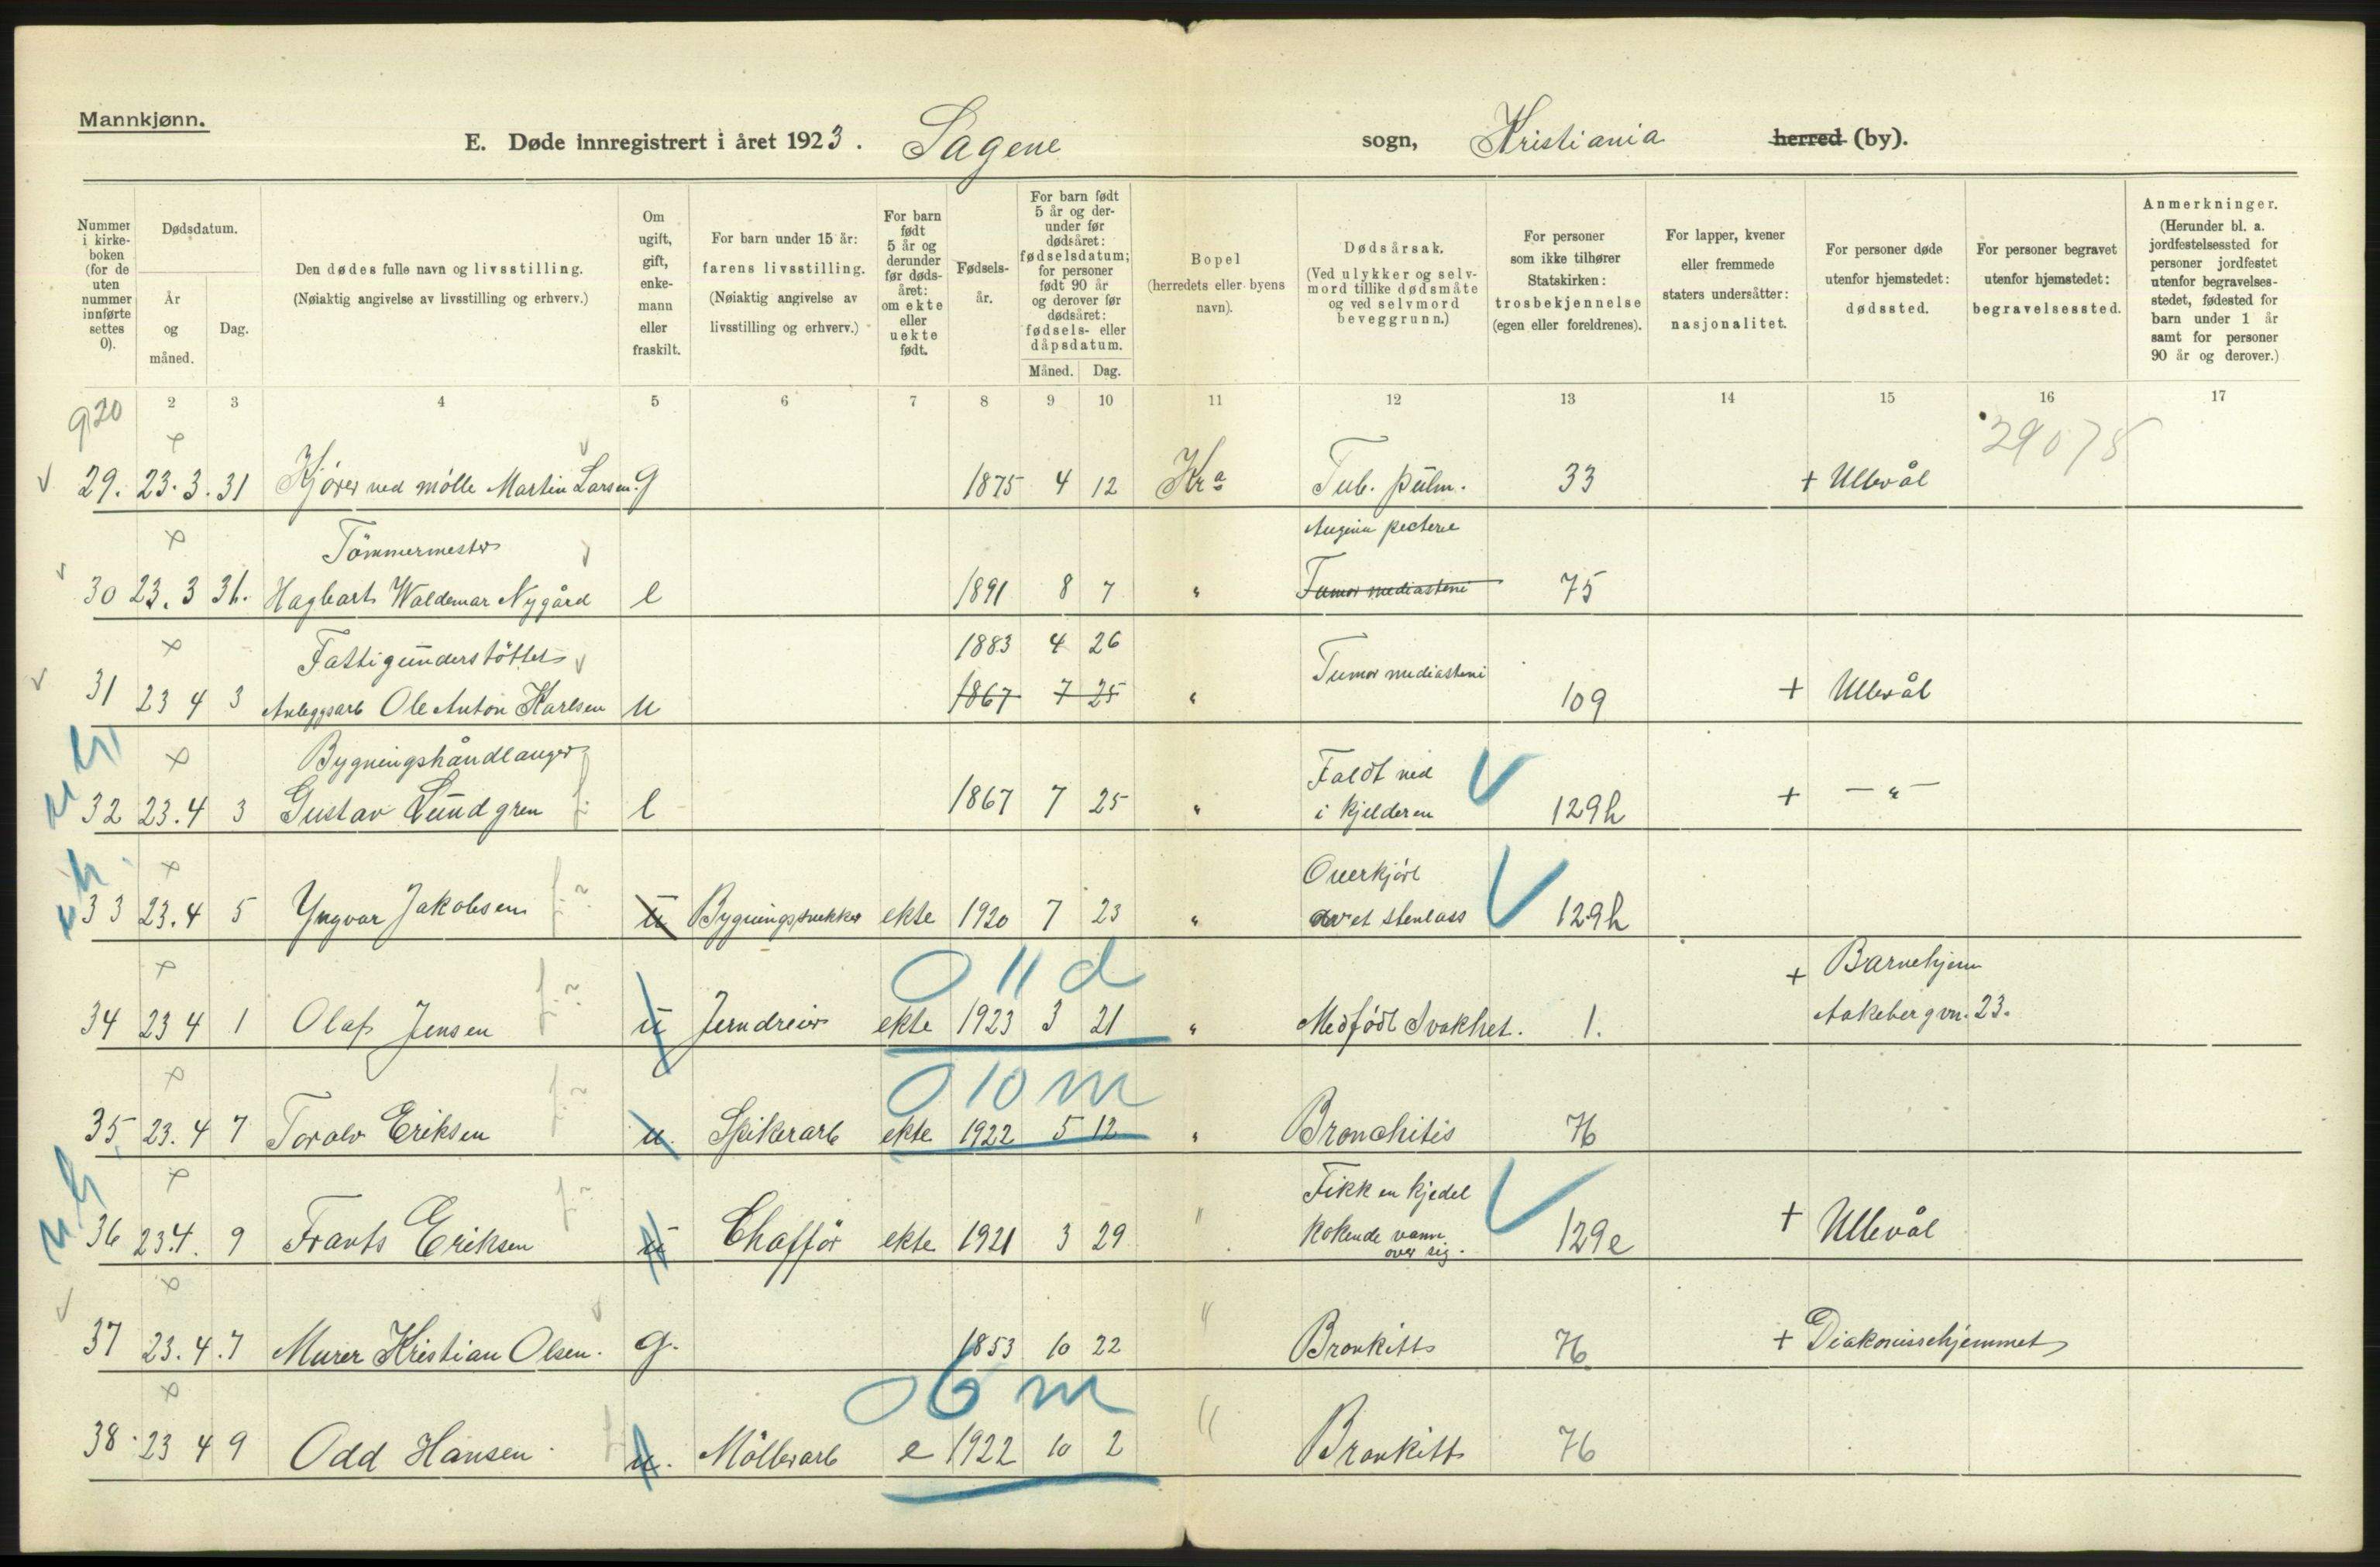 Mannkjønn.
E. Døde innregistrert i året 1923. Sagene sogn, Kristiania herred (by).
Nummer i kirke-boken (for de uten nummer innførte settes 0).
Dødsdatum.
År og måned.
Dag.
Den dødes fulle navn og livsstilling.
(Nøiaktig angivelse av livsstilling og erhverv.)
Om ugift, gift, enke-mann eller fraskilt.
For barn under 15 år: farens livsstilling. (Nøiaktig angivelse av livsstilling og erhverv.)
For barn født 5 år og derunder før døds-året: om ekte eller uekte født.
Fødsels-år.
For barn født 5 år og der-under før dødsåret: fødselsdatum; for personer født 90 år og derover før dødsåret: fødsels- eller dåpsdatum.
Måned. Dag.
Bopel (herredets eller byens navn).
Dødsårsak. (Ved ulykker og selv-mord tillike dødsmåte og ved selvmord beveggrunn.)
For personer som ikke tilhører Statskirken: trosbekjennelse (egen eller foreldrenes).
For lapper, kvener eller fremmede staters undersåtter: nasjonalitet.
For personer døde utenfor hjemstedet: dødssted.
For personer begravet utenfor hjemstedet: begravelsessted.
Anmerkninger. (Herunder bl. a. jordfestelsessted for personer jordfestet utenfor begravelses-stedet, fødested for barn under 1 år samt for personer 90 år og derover.)
2 3 4 5 6 7 8 9 10 11 12 13 14 15 16 17
920
29075
29. 23.3.31 Kjører ved mølle Martin Larsen. g 1875 4 12 Kra Tub. pulm. 33 + Ullevål
Tömmermester Angina pectoris
30 23.3 31. Hagbart Waldemar Nygård e 1891 8 7 " Tumor mediasteni 75
Fattigunderstöttet 1883 4 26 Tumor mediasteni
31 23 4 3 Anleggsarb Ole Anton Karlsen u 1867 7 25 " 109 + Ullevål
Bygningshåndlanger Faldt ned
32 23.4 3 Gustav Lundgren e 1867 7 25 " i kjelderen 129h + — " —
Overkjørt
33 23.4 5 Yngvar Jakobsen u Bygningssnekker ekte 1920 7 23 " av et stenlass 129h
0 11 d + Barnehjem
34 23 4 1 Olaf Jensen u Jerndreier ekte 1923 3 21 " Medfödt Svakhet. 1. Aakebergvn. 23.
0 10 m
35 23.4 7 Toralv Eriksen u. Spikerarb ekte 1922 5 12 " Bronchitis 76
Fikk en kjedel
36 23.4. 9 Frants Eriksen u Chafför ekte 1921 3 29 " kokende vann over sig. 129e + Ullevål
37 23.4.7 Murer Kristian Olsen. g. 1853 10 22 " Bronkitt 76 + Diakonissehjemmet
0 6 m
38 23 4 9 Odd Hansen u. Möllerarb e 1922 10 2 " Bronkitt 76